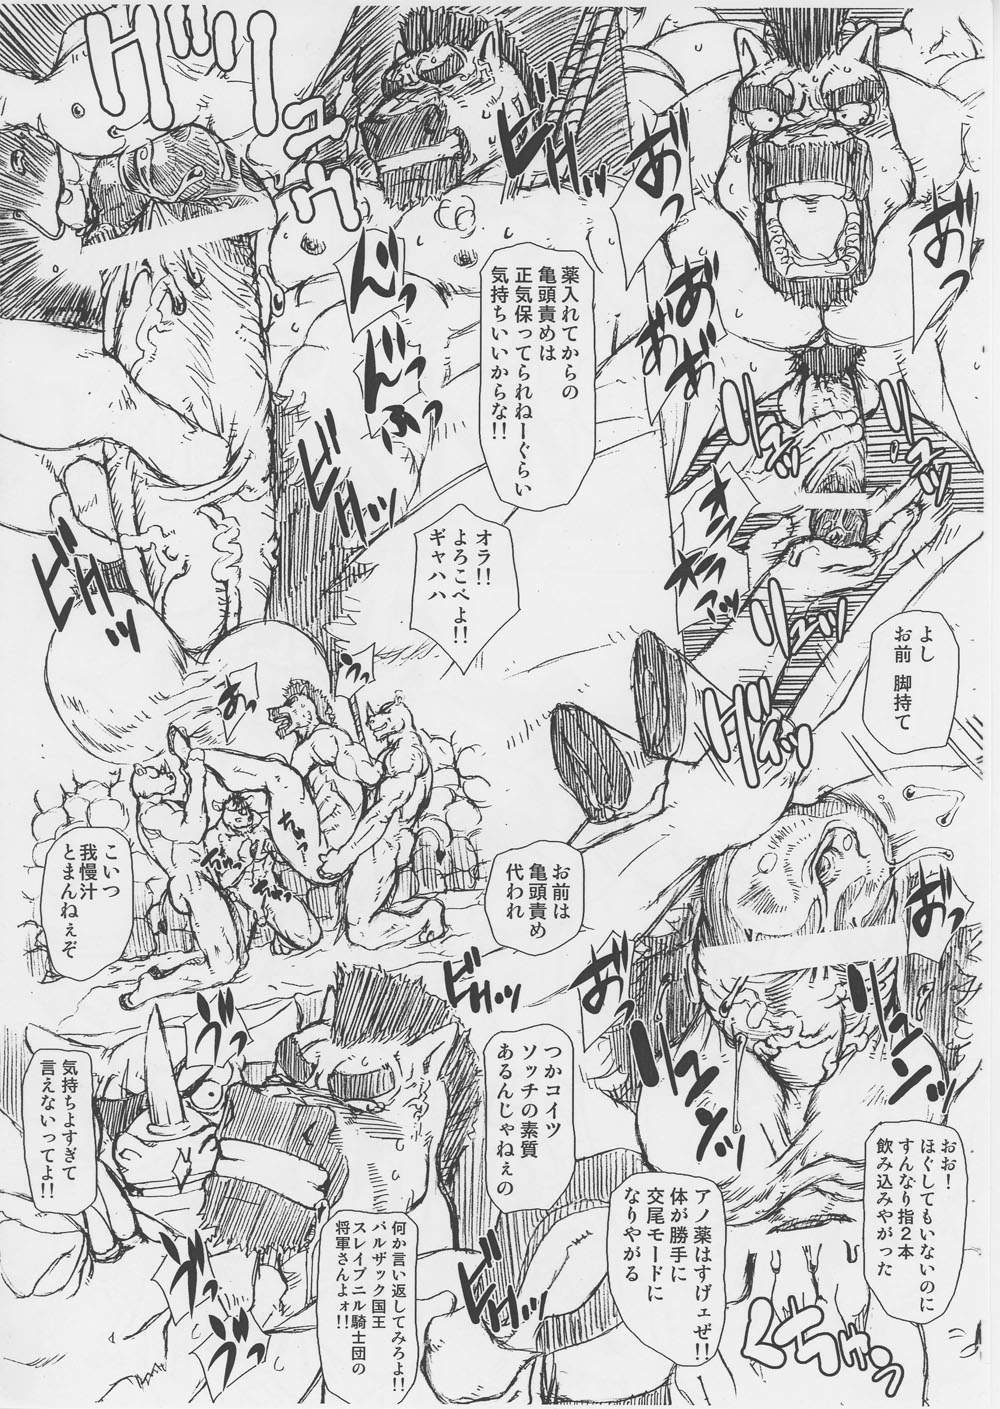 あおっ
あおおっ
おあっ
リュッ
リュグッ
オンッ
オオンッ
リュッ
薬入れてからの
亀頭責めは
正気保ってられねーぐらい
気持ちいいからな!!
オラ!!
よろこべよ!!
ギャハハ
ビュッ
ビクンッ
んっ
んんっ
ふっ
ビクンッ
ビクンッ
よし
お前 脚持て
お前は
亀頭責め
代われ
こいつ
我慢汁
とまんねぇぞ
うっ
あっ
おお!
ほぐしてもいないのに
すんなり指2本
飲み込みやがった
アノ薬はすげェぜ!!
体が勝手に
交尾モードに
なりやがる
くちゅう
つかコイツ
ソッチの素質
あるんじゃねぇの
ビクッ
ヴッ
ヴッ
何か言い返してみろよ!!
バルザック国王
スレイプニル騎士団の
将軍さんよォ!!
気持ちよすぎて
言えないってよ!!